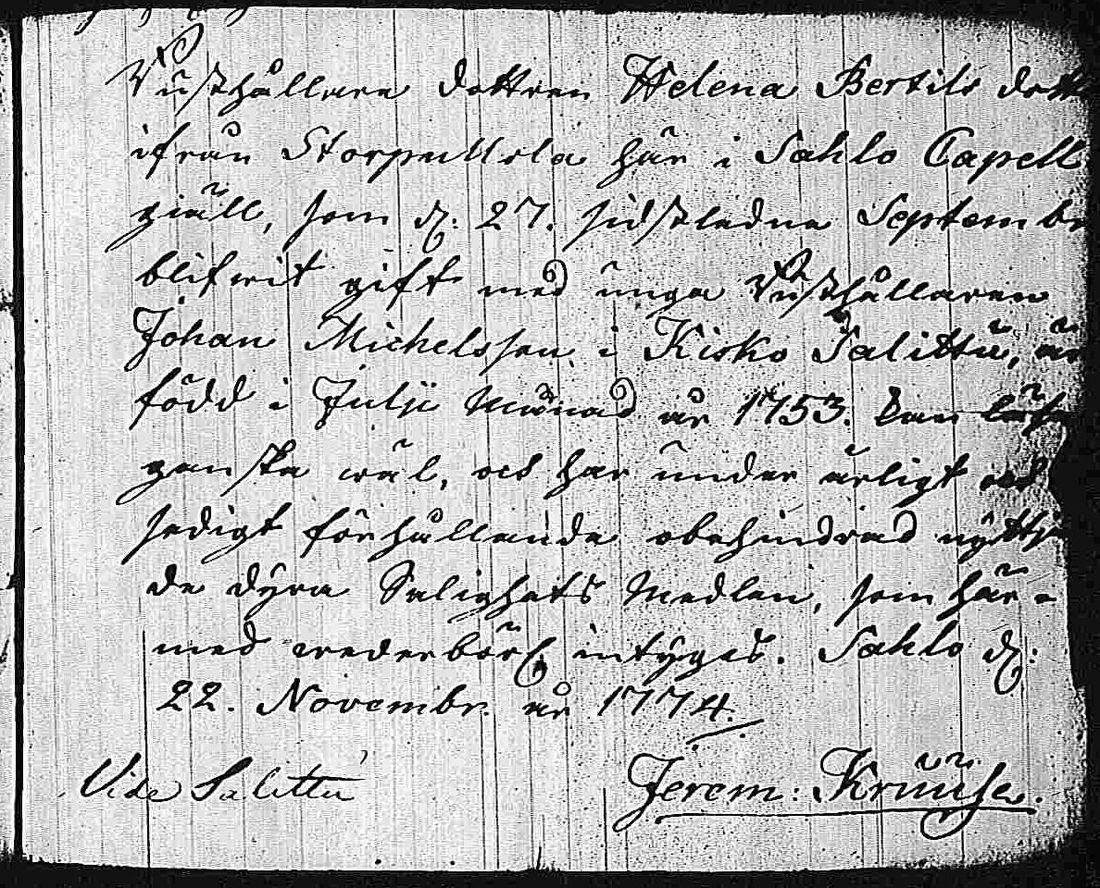 Rusthållare dottren Helena Bertils dott
ifrån Storpullola här i Sahlo Capell
giäll, som d. 27. sidstledne Septembr
blifwit gift med unga Rusthållaren
Johan Michelsson i Kisko Salittu, är
född i Julii Månad år 1753. kan läsa
ganska wäl, och har under ärligt och
sedigt förhållande obehindrad nyttja
de dyra Salighets Medlen, som här-
med wederbörl. intygas. Sahlo d:
22. Novembr. år 1774.
Vide Salittu
Jerem: Kruuse.